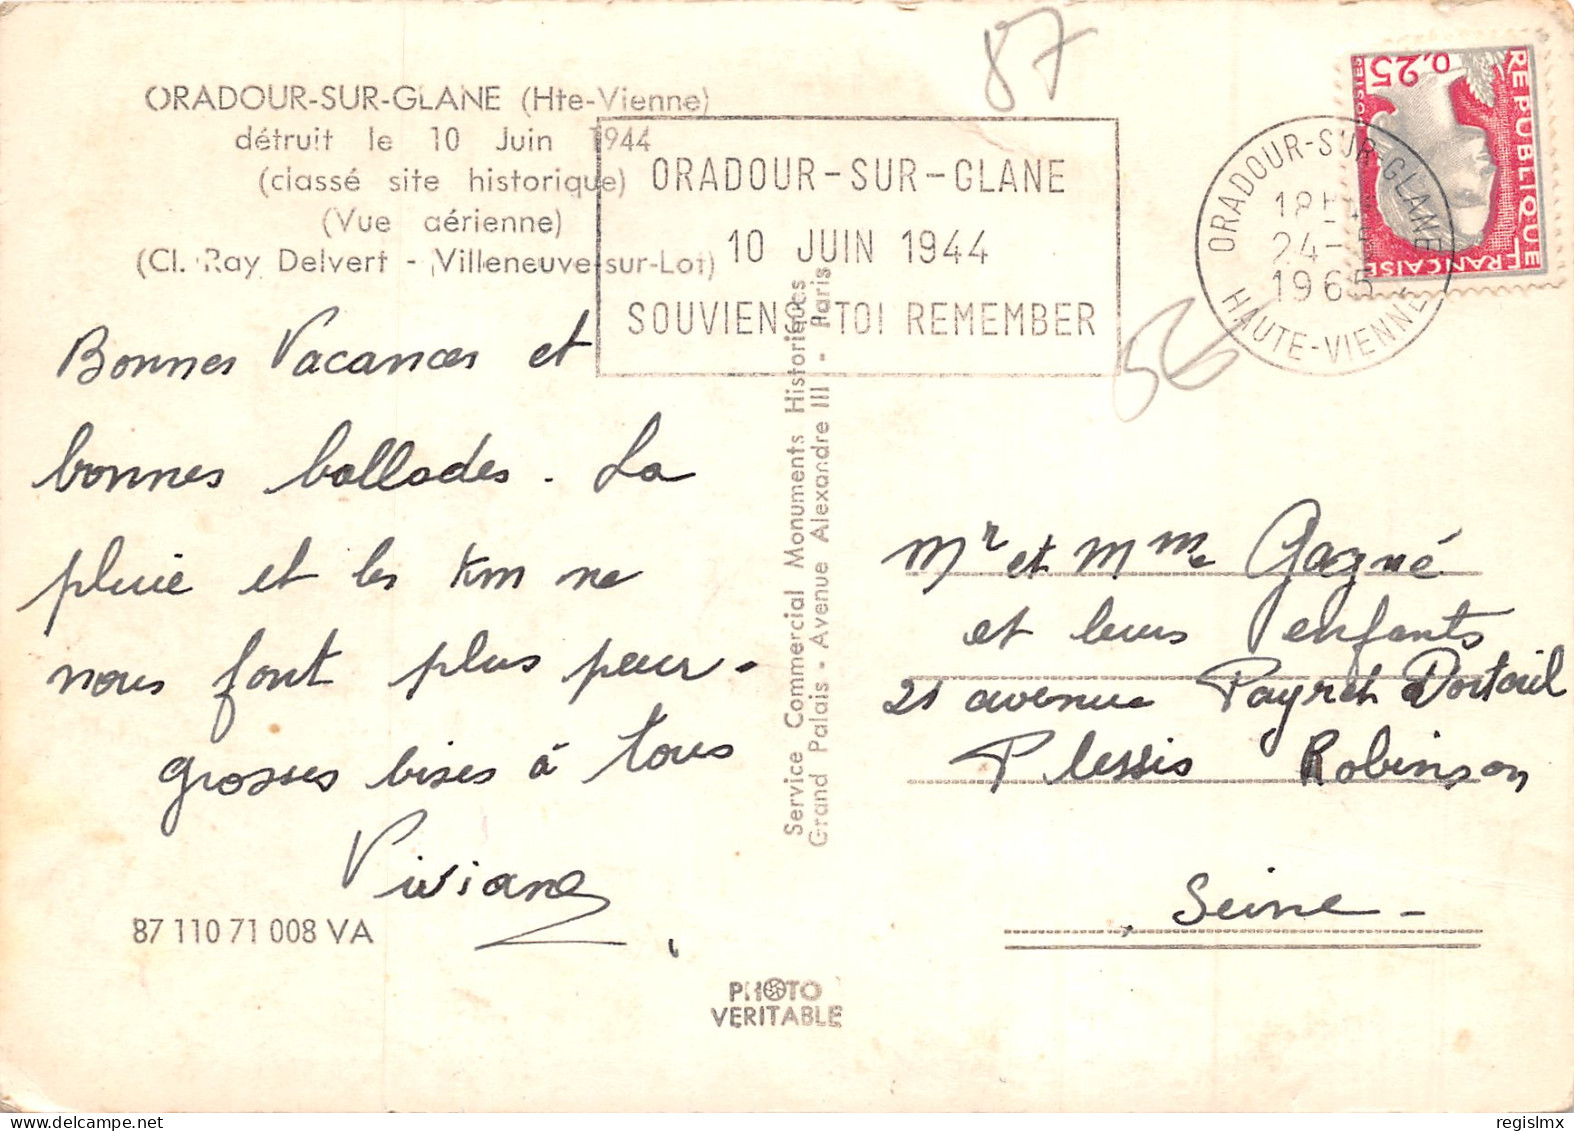 87
ORADOUR-SUR-GLANE (Hte-Vienne)
détruit le 10 Juin 1944
(classé site historique)
(Vue aérienne)
(Cl. Ray Delvert - Villeneuve-sur-Lot)
ORADOUR-SUR-GLANE
10 JUIN 1944
SOUVIENS TOI REMEMBER
ORADOUR-SUR-GLANE
24-
1965
HAUTE-VIENNE
0,25
REPUBLIQUE
FRANÇAISE
POSTES
56
Bonnes Vacances et
bonnes ballades. La
pluie et les km ne
nous font plus peur-
grosses bises à tous
Viviane
87 110 71 008 VA
Service Commercial Monuments Historiques
Grand Palais - Avenue Alexandre III - Paris
PHOTO
VERITABLE
Mr et Mme Gagné
et leurs enfants
21 avenue Payret Dortail
Plessis Robinson
Seine -
regislmx